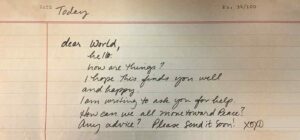 DATE Today No. 14/100
dear World,
hello
how are things?
I hope this finds you well
and happy.
I am writing to ask you for help.
How can we all move toward Peace?
Any advice? Please send it soon! xoxo